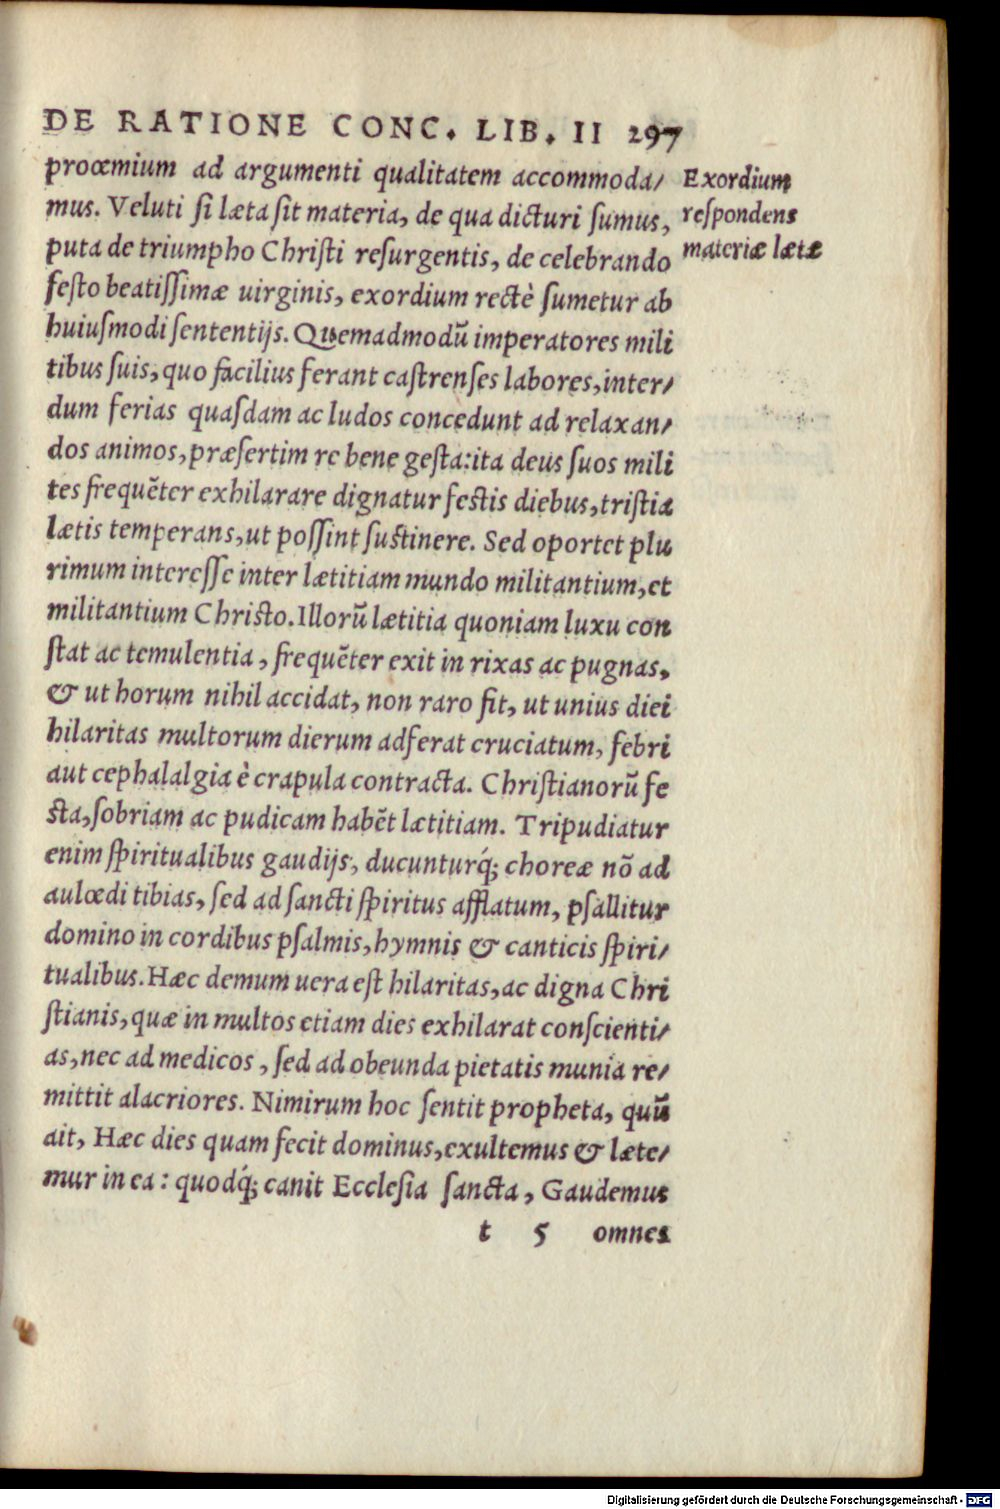 DE RATIONE CONC. LIB. II 297
prooemium ad argumenti qualitatem accommoda/
mus. Veluti ſi læta ſit materia, de qua dicturi ſumus,
puta de triumpho Chriſti reſurgentis, de celebrando
feſto beatiſſimæ uirginis, exordium rectè ſumetur ab
huiuſmodi ſententijs. Quemadmodū imperatores mili
tibus ſuis, quo facilius ferant caſtrenſes labores, inter/
dum ferias quaſdam ac ludos concedunt ad relaxan/
dos animos, præſertim re bene geſta: ita deus ſuos mili
tes frequēter exhilarare dignatur feſtis diebus, triſtia
lætis temperans, ut poſſint ſuſtinere. Sed oportet plu
rimum intereſſe inter lætitiam mundo militantium, et
militantium Chriſto. Illorū lætitia quoniam luxu con
ſtat ac temulentia, frequēter exit in rixas ac pugnas,
& ut horum nihil accidat, non raro fit, ut unius diei
hilaritas multorum dierum adferat cruciatum, febri
aut cephalalgia è crapula contracta. Chriſtianorū fe
ſta, ſobriam ac pudicam habēt lætitiam. Tripudiatur
enim ſpiritualibus gaudijs, ducunturq́; choreæ nō ad
auloedi tibias, ſed ad ſancti ſpiritus afflatum, pſallitur
domino in cordibus pſalmis, hymnis & canticis ſpiri/
tualibus. Hæc demum uera eſt hilaritas, ac digna Chri
ſtianis, quæ in multos etiam dies exhilarat conſcienti/
as, nec ad medicos, ſed ad obeunda pietatis munia re/
mittit alacriores. Nimirum hoc ſentit propheta, quū
ait, Hæc dies quam fecit dominus, exultemus & læte/
mur in ea: quodq́; canit Eccleſia ſancta, Gaudemus
t 5 omnes
Exordium
reſpondens
materiæ lætæ
Digitalisierung gefördert durch die Deutsche Forschungsgemeinschaft - DFG